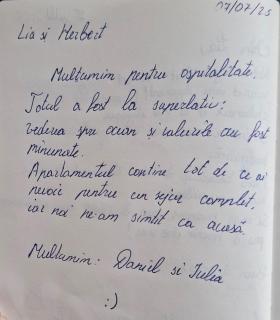 17/07/25
Lia și Herbert
Multumim pentru ospitalitate.
Totul a fost la superlativ:
vederea spre ocean și valurile au fost
minunate.
Apartamentul contine tot de ce ai
nevoie pentru un sejur complet,
iar noi ne-am simtit ca acasă.
Multumim: Daniel si Iulia
:)